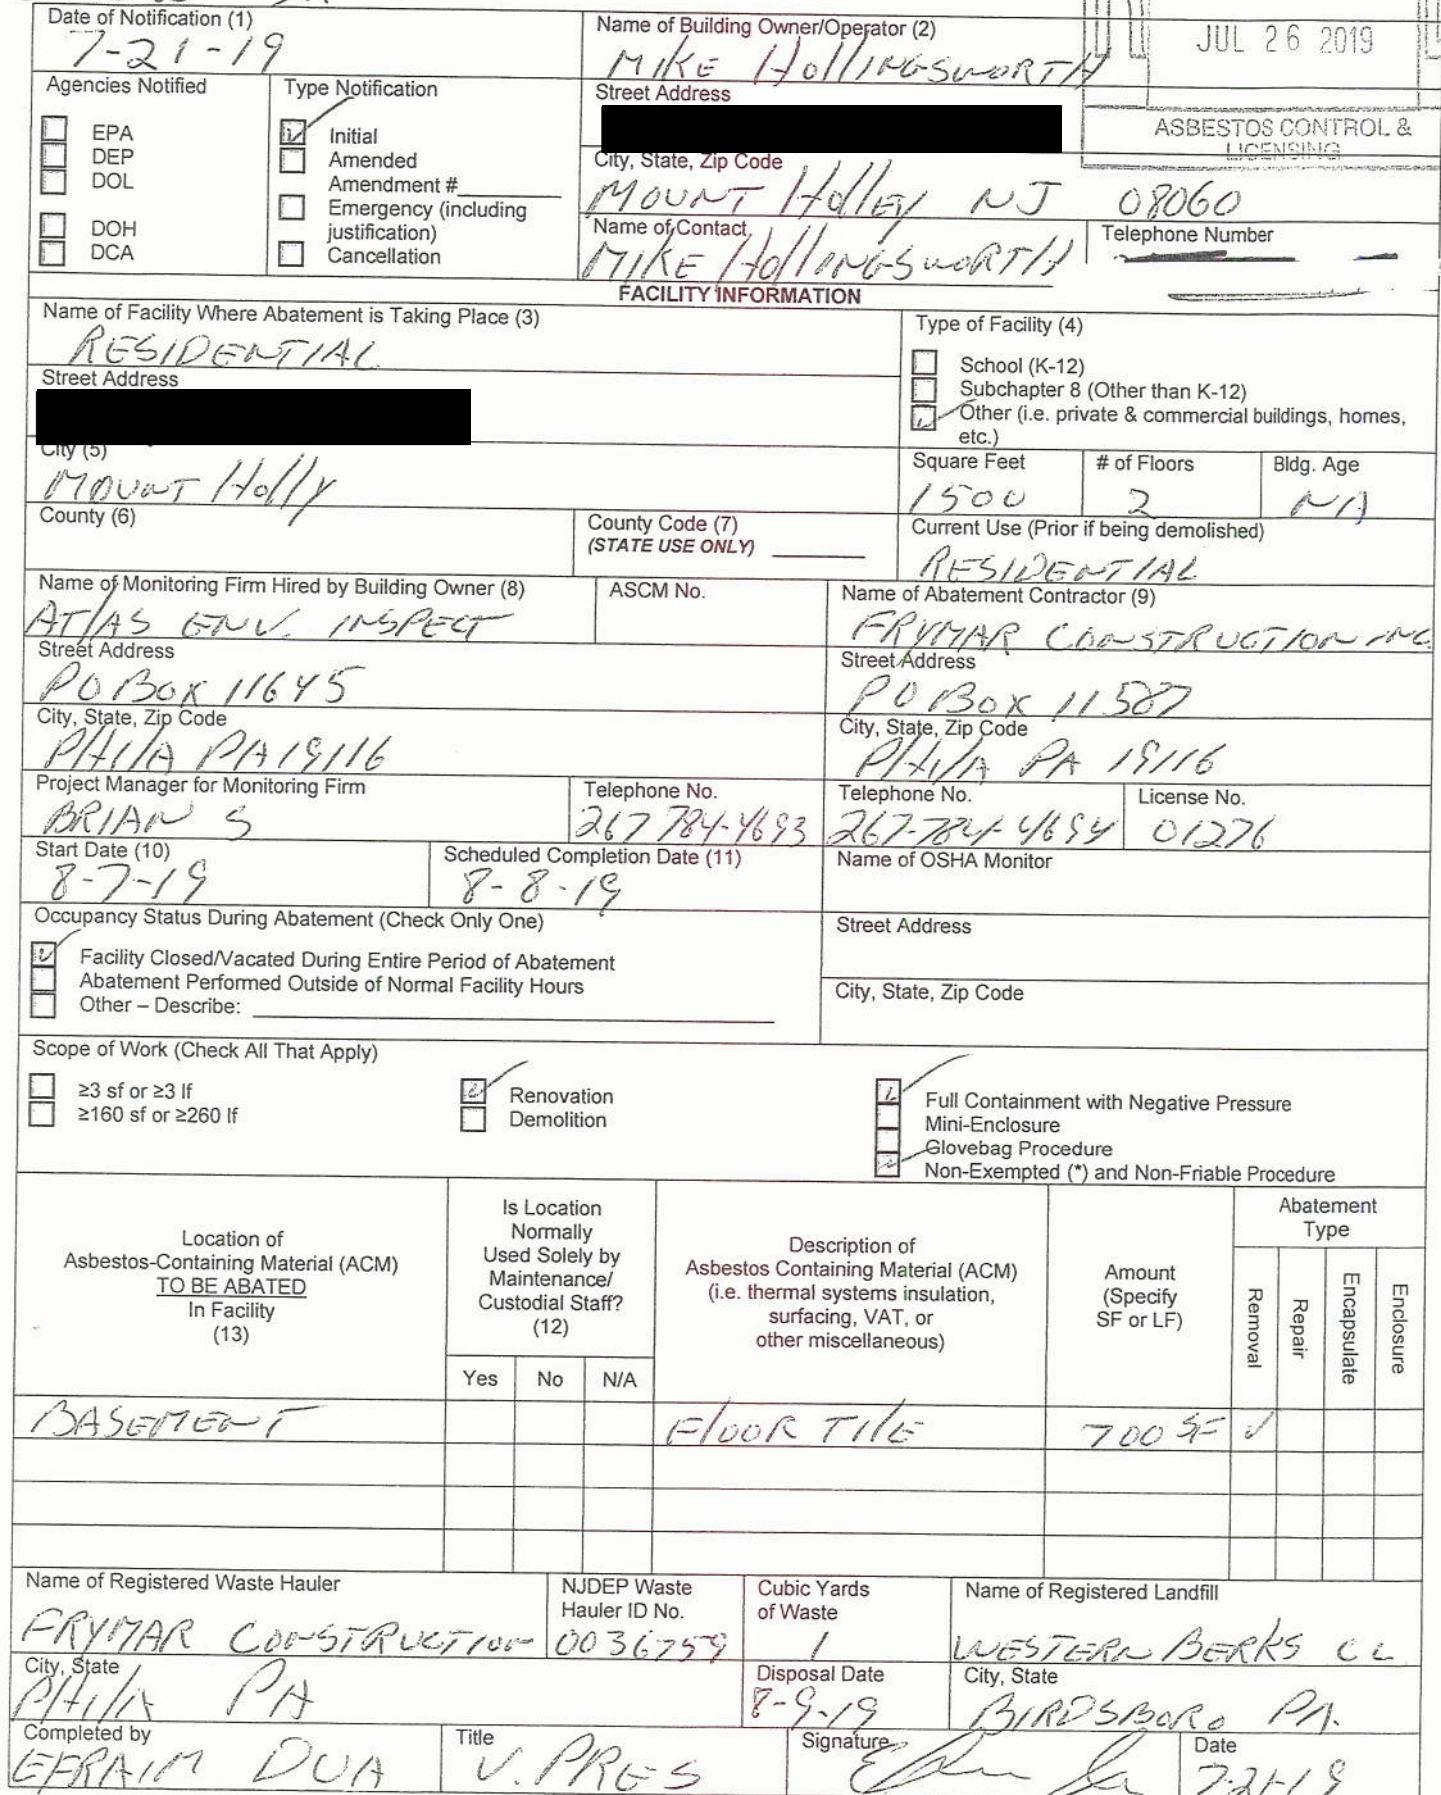 Date of Notification (1)
7-21-19
Name of Building Owner/Operator (2)
MIKE HOllINGSWORTH
JUL 26 2019
ASBESTOS CONTROL &
LICENSING
Agencies Notified
EPA
DEP
DOL
DOH
DCA
Type Notification
Initial
Amended
Amendment #
Emergency (including
justification)
Cancellation
Street Address
City, State, Zip Code
MOUNT HOllEY NJ 08060
Name of Contact
MIKE HOllINGSWORTH
Telephone Number
FACILITY INFORMATION
Name of Facility Where Abatement is Taking Place (3)
RESIDENTIAL
Street Address
City (5)
MOUNT Holly
Type of Facility (4)
School (K-12)
Subchapter 8 (Other than K-12)
Other (i.e. private & commercial buildings, homes,
etc.)
Square Feet
1500
# of Floors
2
Bldg. Age
NA
County (6)
County Code (7)
(STATE USE ONLY)
Current Use (Prior if being demolished)
RESIDENTIAL
Name of Monitoring Firm Hired by Building Owner (8)
ATlAS ENV. INSPECT
ASCM No.
Name of Abatement Contractor (9)
FRYMAR CONSTRUCTION INC
Street Address
PO BOX 11645
Street Address
PO BOX 11587
City, State, Zip Code
PHIlA PA 19116
City, State, Zip Code
PHIlA PA 19116
Project Manager for Monitoring Firm
BRIAN S
Telephone No.
267 784-4693
Telephone No.
267-784-4694
License No.
01276
Start Date (10)
8-7-19
Scheduled Completion Date (11)
8-8-19
Name of OSHA Monitor
Occupancy Status During Abatement (Check Only One)
Facility Closed/Vacated During Entire Period of Abatement
Abatement Performed Outside of Normal Facility Hours
Other – Describe:
Street Address
City, State, Zip Code
Scope of Work (Check All That Apply)
≥3 sf or ≥3 lf
≥160 sf or ≥260 lf
Renovation
Demolition
Full Containment with Negative Pressure
Mini-Enclosure
Glovebag Procedure
Non-Exempted (*) and Non-Friable Procedure
Location of
Asbestos-Containing Material (ACM)
TO BE ABATED
In Facility
(13)
Is Location
Normally
Used Solely by
Maintenance/
Custodial Staff?
(12)
Yes No N/A
Description of
Asbestos Containing Material (ACM)
(i.e. thermal systems insulation,
surfacing, VAT, or
other miscellaneous)
Amount
(Specify
SF or LF)
Abatement
Type
Removal
Repair
Encapsulate
Enclosure
BASEMENT FlOOR TIlE 700 SF ✓
Name of Registered Waste Hauler
FRYMAR CONSTRUCTION
NJDEP Waste
Hauler ID No.
0036759
Cubic Yards
of Waste
1
Name of Registered Landfill
WESTERN BERKS CL
City, State
PHIlA PA
Disposal Date
8-9-19
City, State
BIRDSBORO PA.
Completed by
EFRAIM DUA
Title
V. PRES
Signature
Date
7-21-19